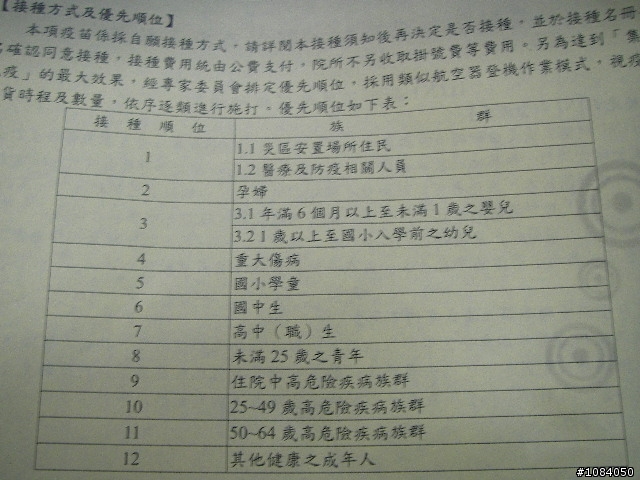 【接種方式及優先順位】
本項疫苗係採自願接種方式，請詳閱本接種須知後再決定是否接種，並於接種名冊
確認同意接種，接種費用統由公費支付，院所不另收取掛號費等費用。另為達到「集
疫」的最大效果，經專家委員會排定優先順位，採用類似航空器登機作業模式，視疫
貨時程及數量，依序逐類進行施打。優先順位如下表：
接種順位 族群
1 1.1 災區安置場所住民
1.2 醫療及防疫相關人員
2 孕婦
3 3.1 年滿 6 個月以上至未滿 1 歲之嬰兒
3.2 1 歲以上至國小入學前之幼兒
4 重大傷病
5 國小學童
6 國中生
7 高中（職）生
8 未滿 25 歲之青年
9 住院中高危險疾病族群
10 25~49 歲高危險疾病族群
11 50~64 歲高危險疾病族群
12 其他健康之成年人
#1084050